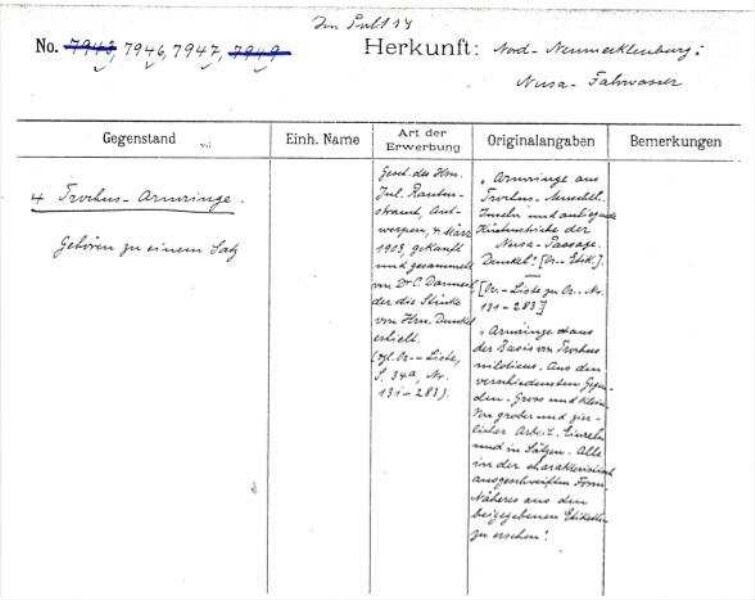 Im Pult 14
No. 7943, 7946, 7947, 7949
Herkunft: Nord-Neumecklenburg:
Nusa-Fahrwasser
Gegenstand
Einh. Name
Art der
Erwerbung
Originalangaben
Bemerkungen
4 Trochus-Armringe.
Gehören zu einem Satz
Gesch. des Hrn.
Jul. Rauten-
strauch, Ant-
werpen, 4 März
1903, gekauft
und gesammelt
von Dr C. Danneil
der die Stücke
von Hrn. Dunkel
erhielt.
(vgl. Or.-Liste,
S. 34a, Nr.
131-283).
"Armringe aus
Trochus-Muschel.
Inseln und anliegende
Küstenstriche der
Nusa-Passage.
Dunkel". [Or.-Etik.].
[Or.-Liste zu Or.-Nr.
131-283]
"Armringe aus
der Basis von Trochus
niloticus. Aus den
verschiedensten Gegen-
den. Gross und klein.
Von grober und zier-
licher Arbeit. Einzeln
und in Sätzen. Alle
in der charakteristisch
ausgeschweiften Form.
Näheres aus den
beigegebenen Etiketten
zu ersehen".